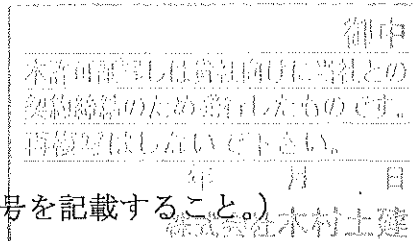 御中
本許可証写しは貴社向けに当社との
契約締結のため発行したものです。
再複写はしないで下さい。
年 月 日
号を記載すること。)
株式会社木村土建